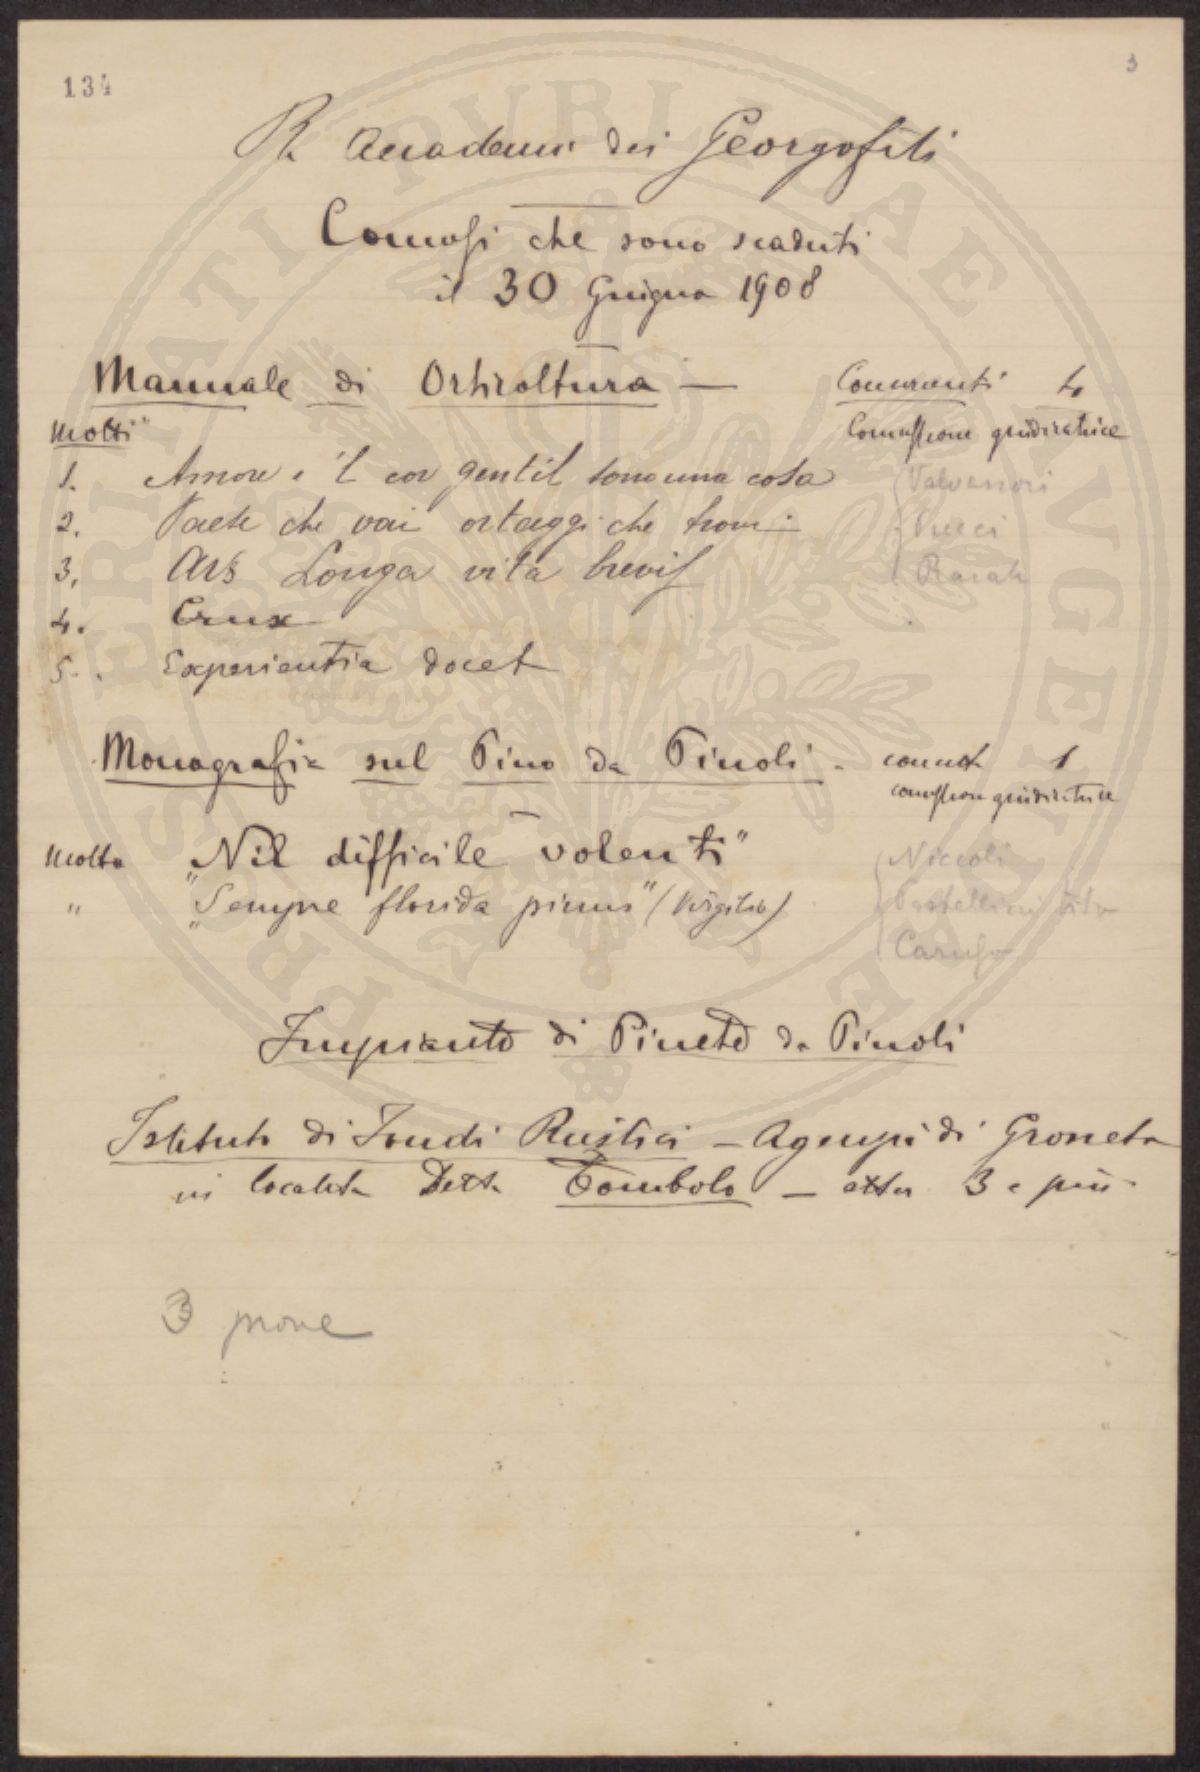 134
3
R. Accademia dei Georgofili
Concorsi che sono scaduti
il 30 Giugno 1908
Manuale di Orticoltura — Concorrenti 4
Motti Commissione giudicatrice
1. Amore e 'l cor gentil sono una cosa
2. Paese che vai ortaggi che trovi Pucci
3. Ars Longa vita brevis
4. Crux
5. Experientia docet
Monografia sul Pino da Pinoli - 1
commissione giudicatrice
Motto "Nil difficile volenti" Niccoli
" "Sempre florida pinus" (Virgilio)
Caruso
Impianto di Pineto da Pinoli
Istituto di Fondi Rustici — di Grosseto
in località detta Tombolo — 3 e più
3 prove
PROSPERITATI PVBLICAE AVGENDAE